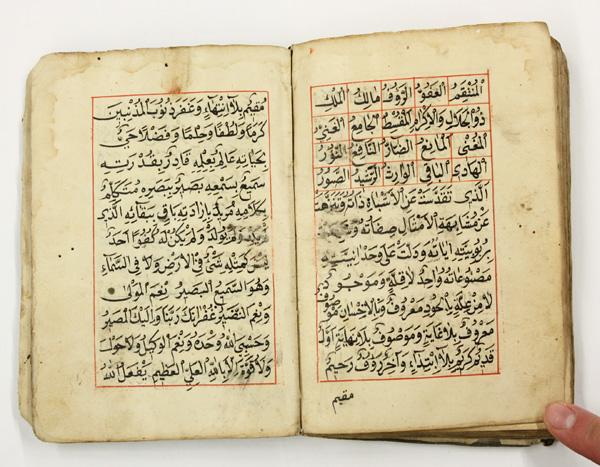 المنتقم العفو الرؤف مالك الملك
ذو الجلال والاكرام المقسط الجامع الغني
المغني المانع الضار النافع النور
الهادي الباقي الوارث الرشيد الصبور
الذي تقدست عن الاشباه ذاته وتنزهت
عن مشابهة الامثال صفاته
بربوبيته آياته ودلت على وحدانيته
مصنوعاته واحد لا قلة وموجود
لا من علة بالجود معروف وبالاحسان موصوف
معروف بلا غاية وموصوف بلا نهاية اول
قديم كريم بلا ابتداء وآخر رؤف رحيم
مقيم
مقيم بلا انتهاء وغفر ذنوب المذنبين
كرما ولطفا وحلما وفضلا حي
بحياته عالم بعلمه قادر بقدرته
سميع بسمعه بصير ببصره متكلم
بكلامه مريد بارادته باقي ببقائه الذي
ولم يولد ولم يكن له كفوا احد
كمثله شئ في الارض ولا في السماء
وهو السميع البصير نعم المولى
ونعم النصير غفرانك ربنا واليك المصير
وحسبي الله وحده ونعم الوكيل ولا حول
ولا قوة الا بالله العلي العظيم يفعل الله